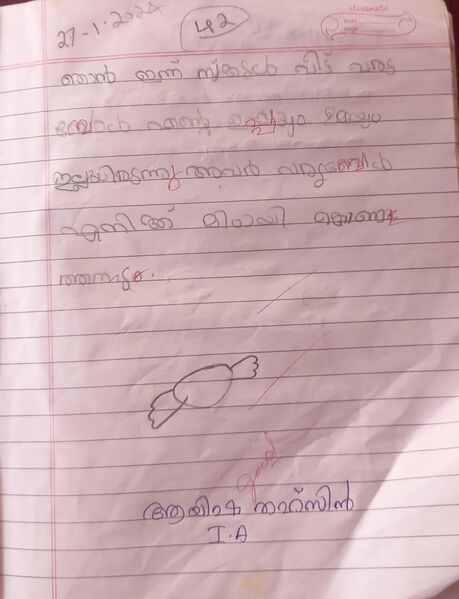 27-1-2024
42
classmate
Date
Page
ഞാൻ ഇന്ന് സ്കൂൾ വിട്ട് വരു
മ്പോൾ എന്റെ ഉപ്പയും ഉമ്മയും
ഇല്ലായിരുന്നു അവർ വരുമ്പോൾ
എനിക്ക് മിഠായി കൊണ്ട്
തന്നു.
good
ആയിഷ തഹ്സിൻ
I.A